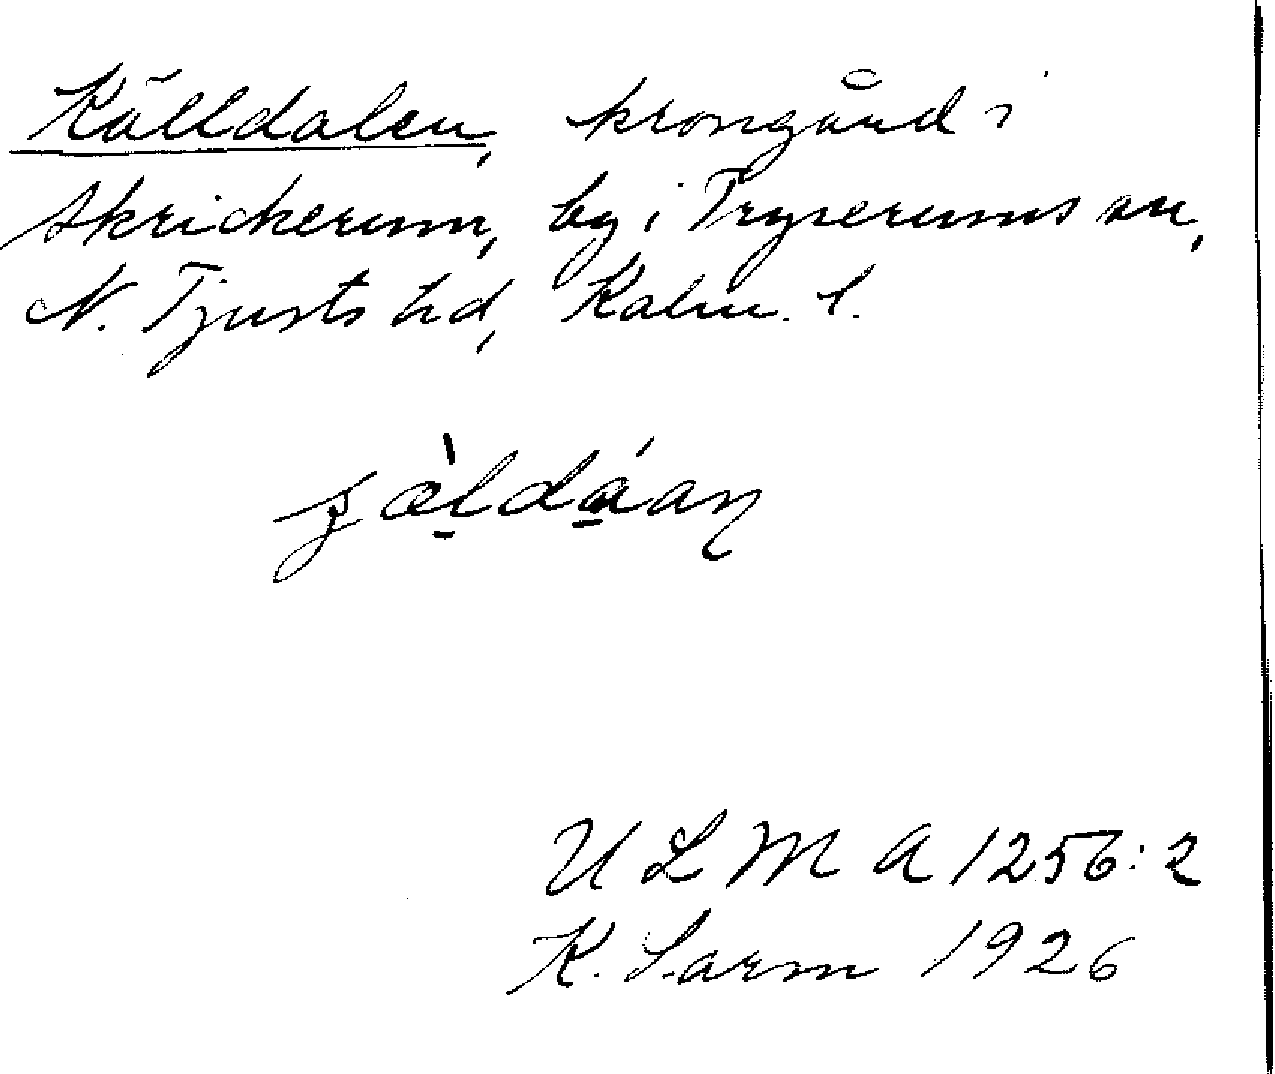 Källdalen, krongård i
Skrickerum, by i Tryserums sn,
N. Tjusts hd, Kalm. l.
U L M A 1256:2
K. Sarm 1926